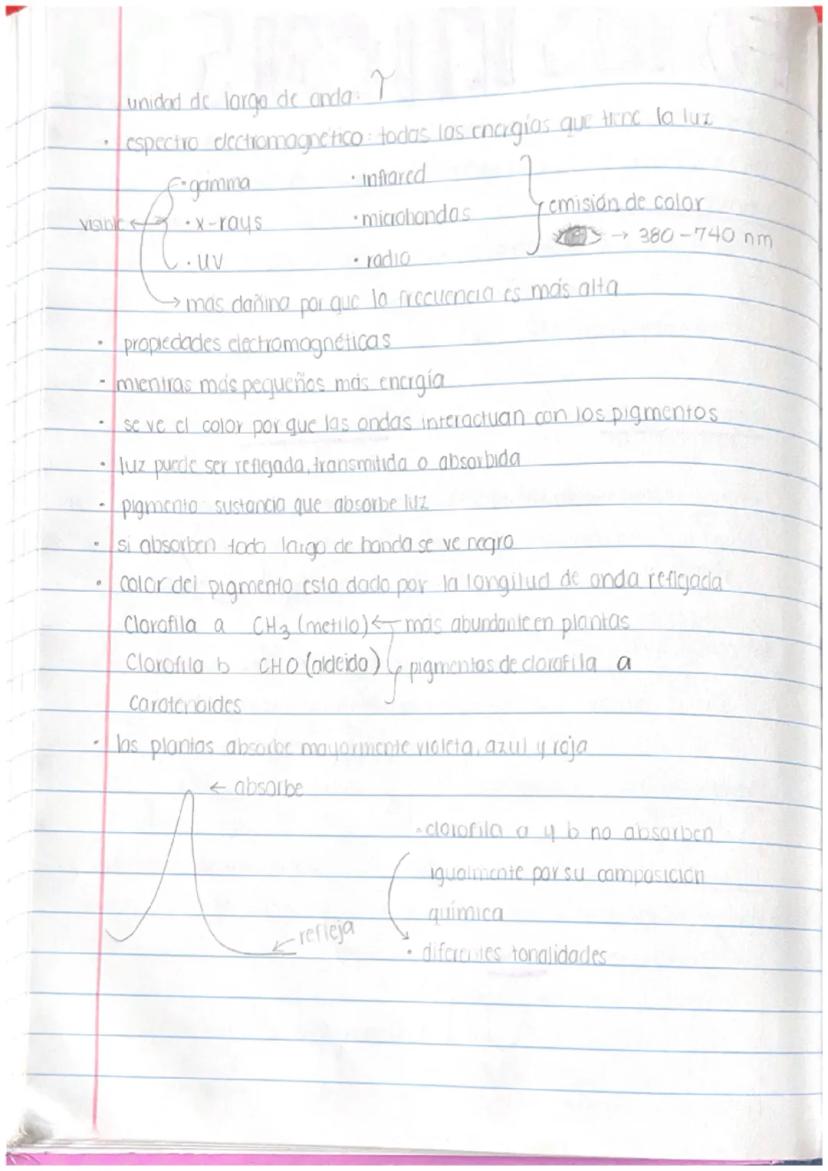 unidad de largo de onda: γ
• espectro electromagnético: todas las energías que tiene la luz
• gamma • infrared
visible • x-rays • microhondas emisión de color
→ 380-740 nm
• UV • radio
→ más dañino por que la frecuencia es más alta
• propiedades electromagnéticas
- mientras más pequeños más energía
• se ve el color por que las ondas interactuan con los pigmentos
• luz puede ser reflejada, transmitida o absorbida
- pigmento sustancia que absorbe luz
• si absorben todo largo de honda se ve negro
• color del pigmento esta dado por la longitud de onda reflejada
Clorofila a CH₃ (metilo) ← más abundante en plantas
Clorofila b CHO (aldeido) pigmentos de clorofila a
Carotenoides
• las plantas absorbe mayormente violeta, azul y roja
← absorbe
• clorofila a y b no absorben
igualmente por su composición
química
← refleja
• diferentes tonalidades